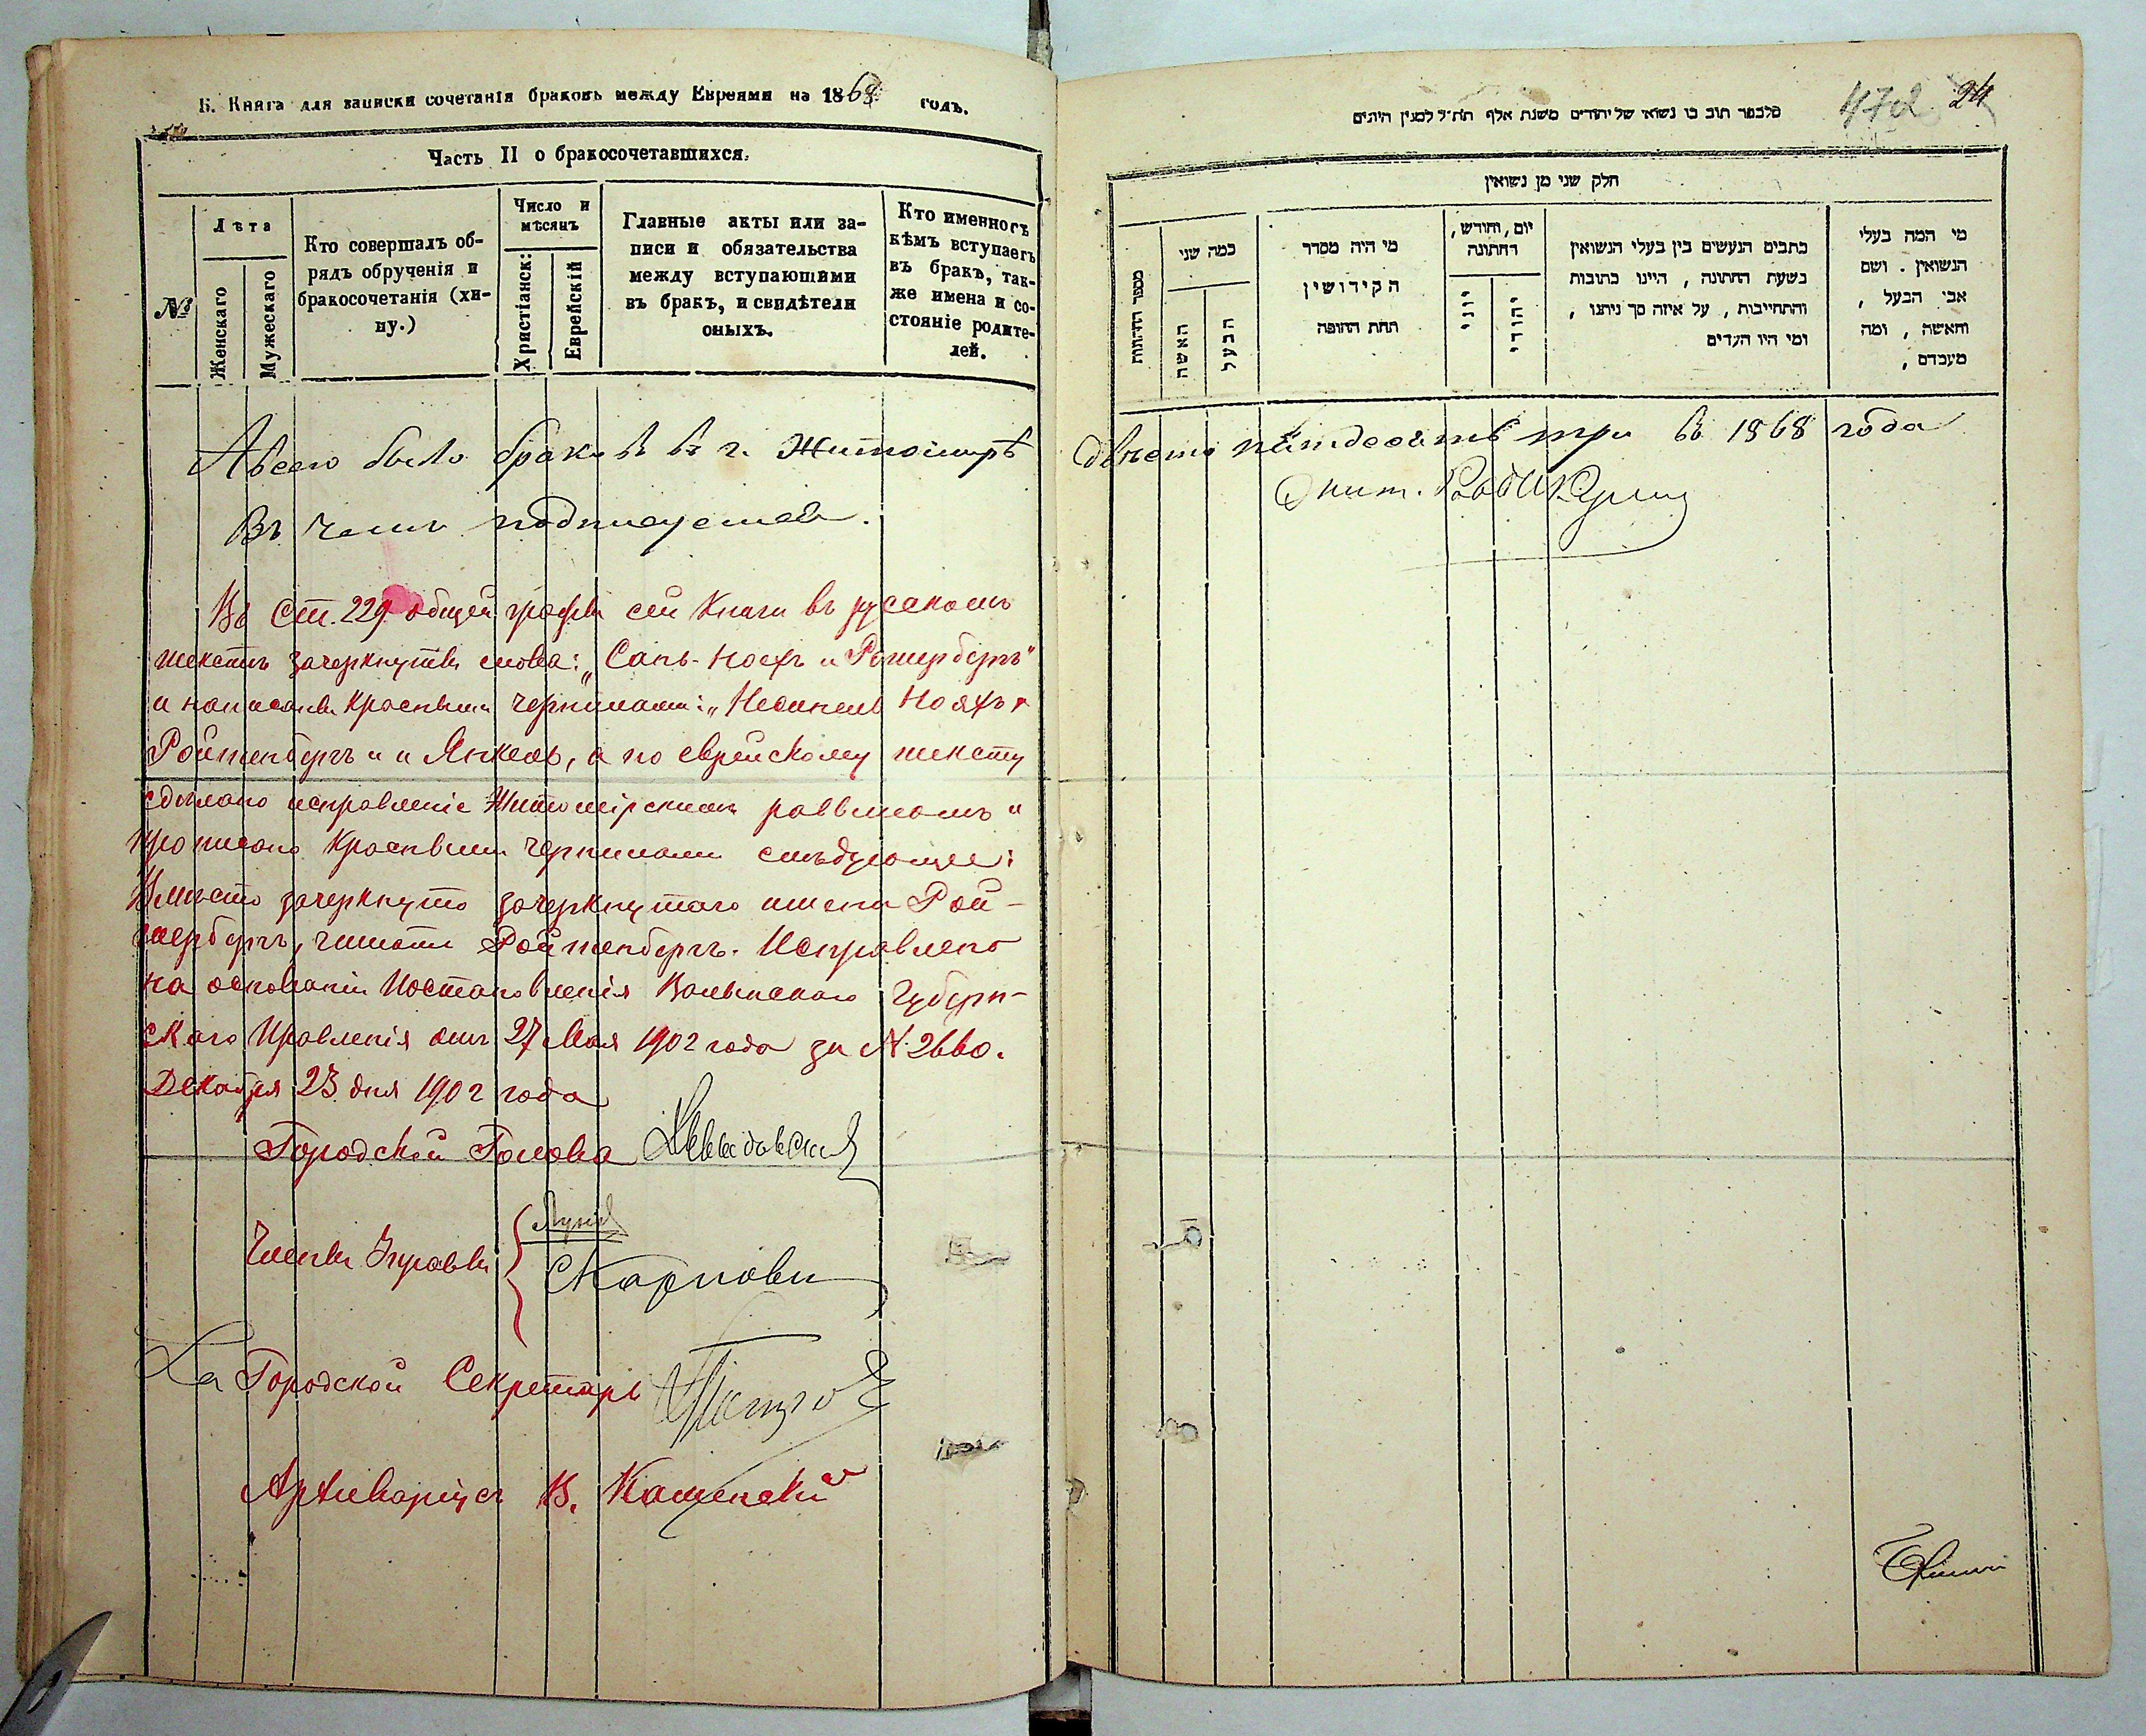 Б. Книга для записки сочетанія браковъ между Евреями на 1868 годъ.
Часть II о бракосочетавшихся.
№
Лѣта
Женскаго
Мужескаго
Кто совершалъ об-
рядъ обрученія и
бракосочетанія (хи-
пу.)
Число и
мѣсяцъ
Христіанск:
Еврейскій
Главные акты или за-
писи и обязательства
между вступающими
въ бракъ, и свидѣтели
оныхъ.
Кто именно съ
кѣмъ вступаетъ
въ бракъ, так-
же имена и со-
стояніе родите-
лей.
Авсего было браковъ въ г. Житомирѣ
двѣсти пятдесятъ три въ 1868 года
Въ чемъ подписуемся.
Въ Ст. 229 общей графы сей Книги въ русскомъ
текстѣ зачеркнуты слова: „Сань-Ноехъ и Ротербергъ"
и написаны красными чернилами: „Нояхъ
Ройтенбергъ и Янкель, а по еврейскому тексту
сдѣлано исправленіе Житомірскимъ раввиномъ и
прописано красными чернилами слѣдующее:
Вмѣсто зачеркнуто зачеркнутаго имени Рой-
тербергъ, читать Ройтенбергъ. Исправлено
на основаніи Постановленія Волынскаго Губерн-
скаго Правленія отъ 27 Мая 1902 года за № 2660.
Декабря 23 дня 1902 года
Городской Голова
Члены Управы
За Городской Секретарь
Архиваріусъ В. Каменскій
472 24
סלבספר תוב בו נשואי של יהודים משנת אלף תת״ל למנין היונים
חלק שני מן נשואין
מספר החתונות
כמה שני
האשה
הבעל
מי היה מסדר
הקידושין
תחת החופה
יום, וחודש,
דחתונה
יוני
יהודי
כתבים הנעשים בין בעלי הנשואין
בשעת החתונה, היינו כתובות
והתחייבות, על איזה סך ניתנו,
ומי היו העדים
מי המה בעלי
הנשואין. ושם
אבי הבעל,
והאשה, ומה
מעמדם,